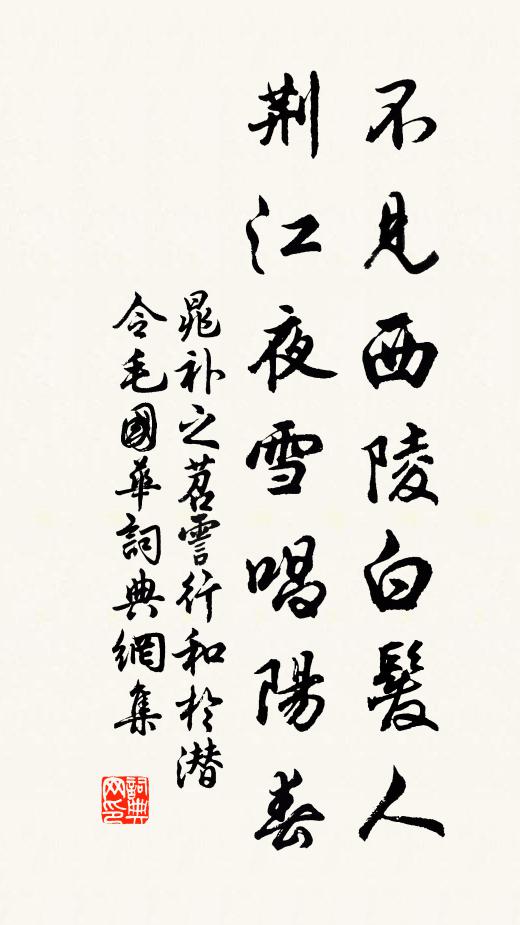 不見西陵白髮人
荆江夜雪唱陽春
晁補之苕霅行和於潛
令毛國華詞典網集
詞典
网印